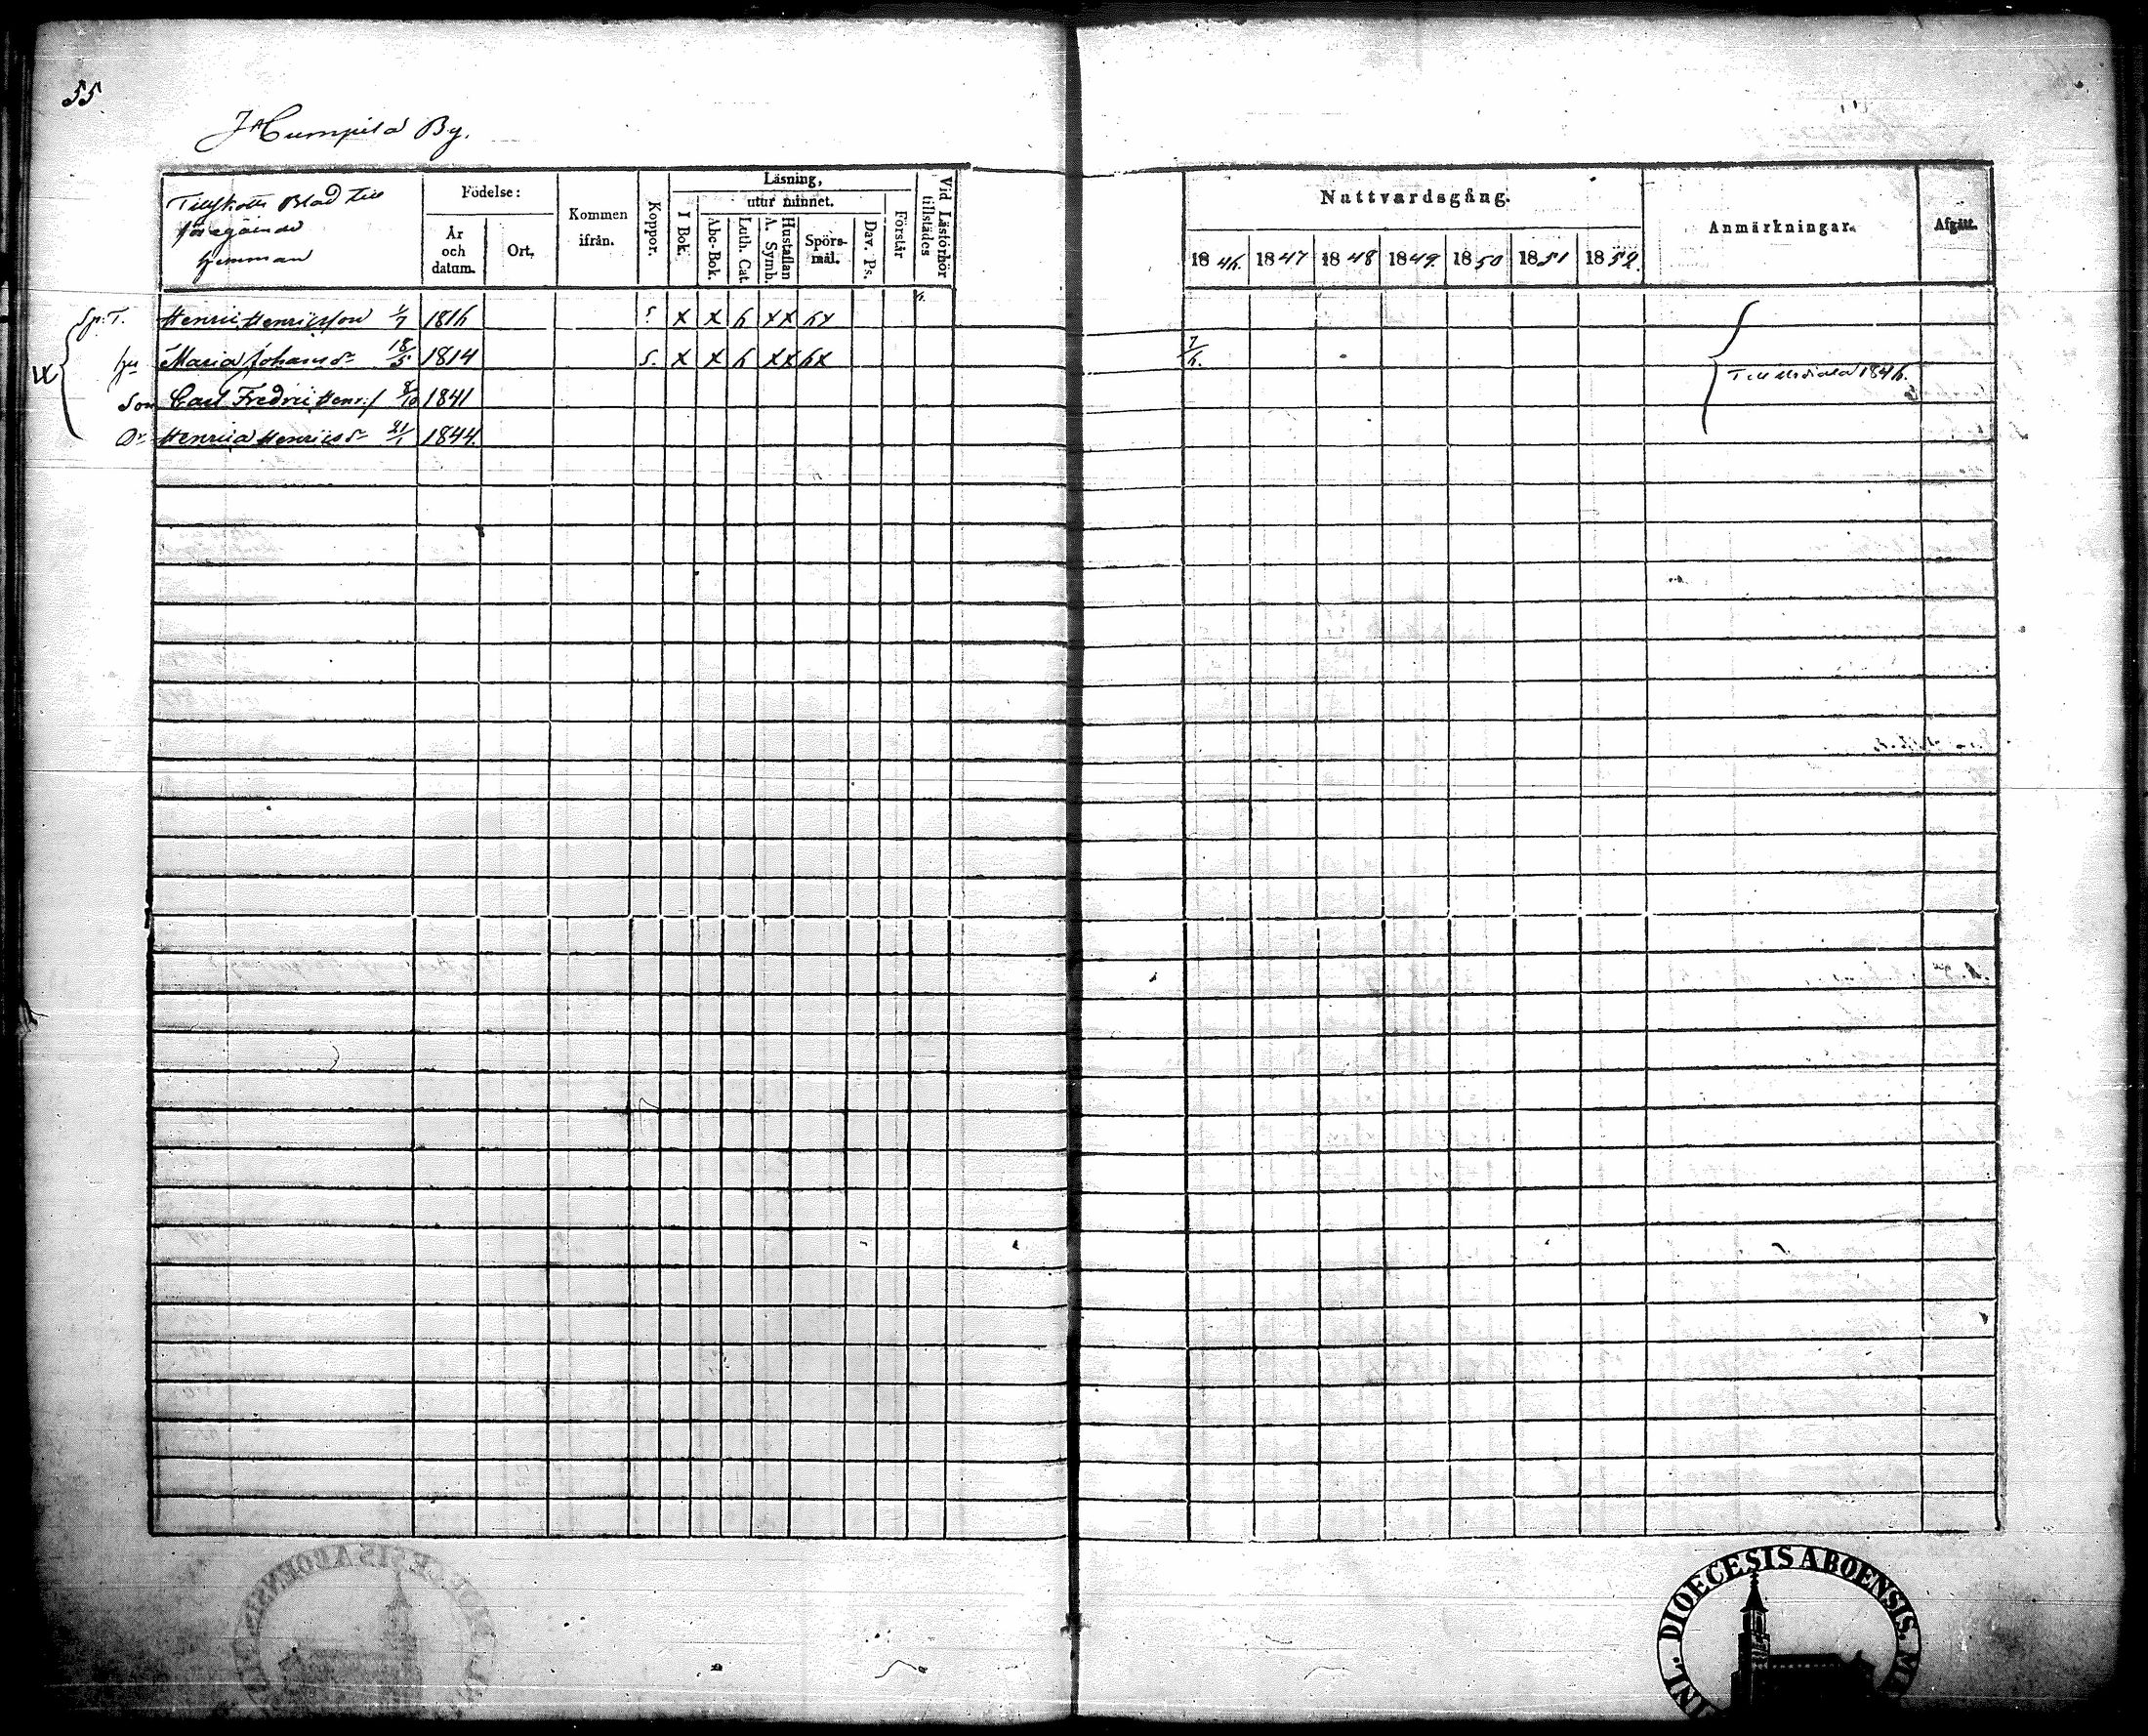 55
Humpila By.
Tillskotts Blad till
föregående
hemman
Födelse:
År
och
datum.
Ort.
Kommen
ifrån.
Koppor.
Läsning,
I Bok.
utur minnet.
Abc-Bok.
Luth. Cat.
A. Symb.
Hustaflan
Spörs-
mål.
Dav. Ps.
Förstår
Vid Läsförhör
tillstädes
Nattvardsgång.
1846. 1847 1848 1849. 1850 1851 1852.
Anmärkningar.
Afgått.
Sp. T. Henric Henricsson 1/7 1816 x x h x x h x
hu Maria Johans dr 18/5 1814 s. x x h x x h x 7/6
Son Carl Fredric Henr: 8/10 1841
Dr Henrica Henrics dr 21/1 1844.
Till 1846.
DIOECESIS ABOENSIS.